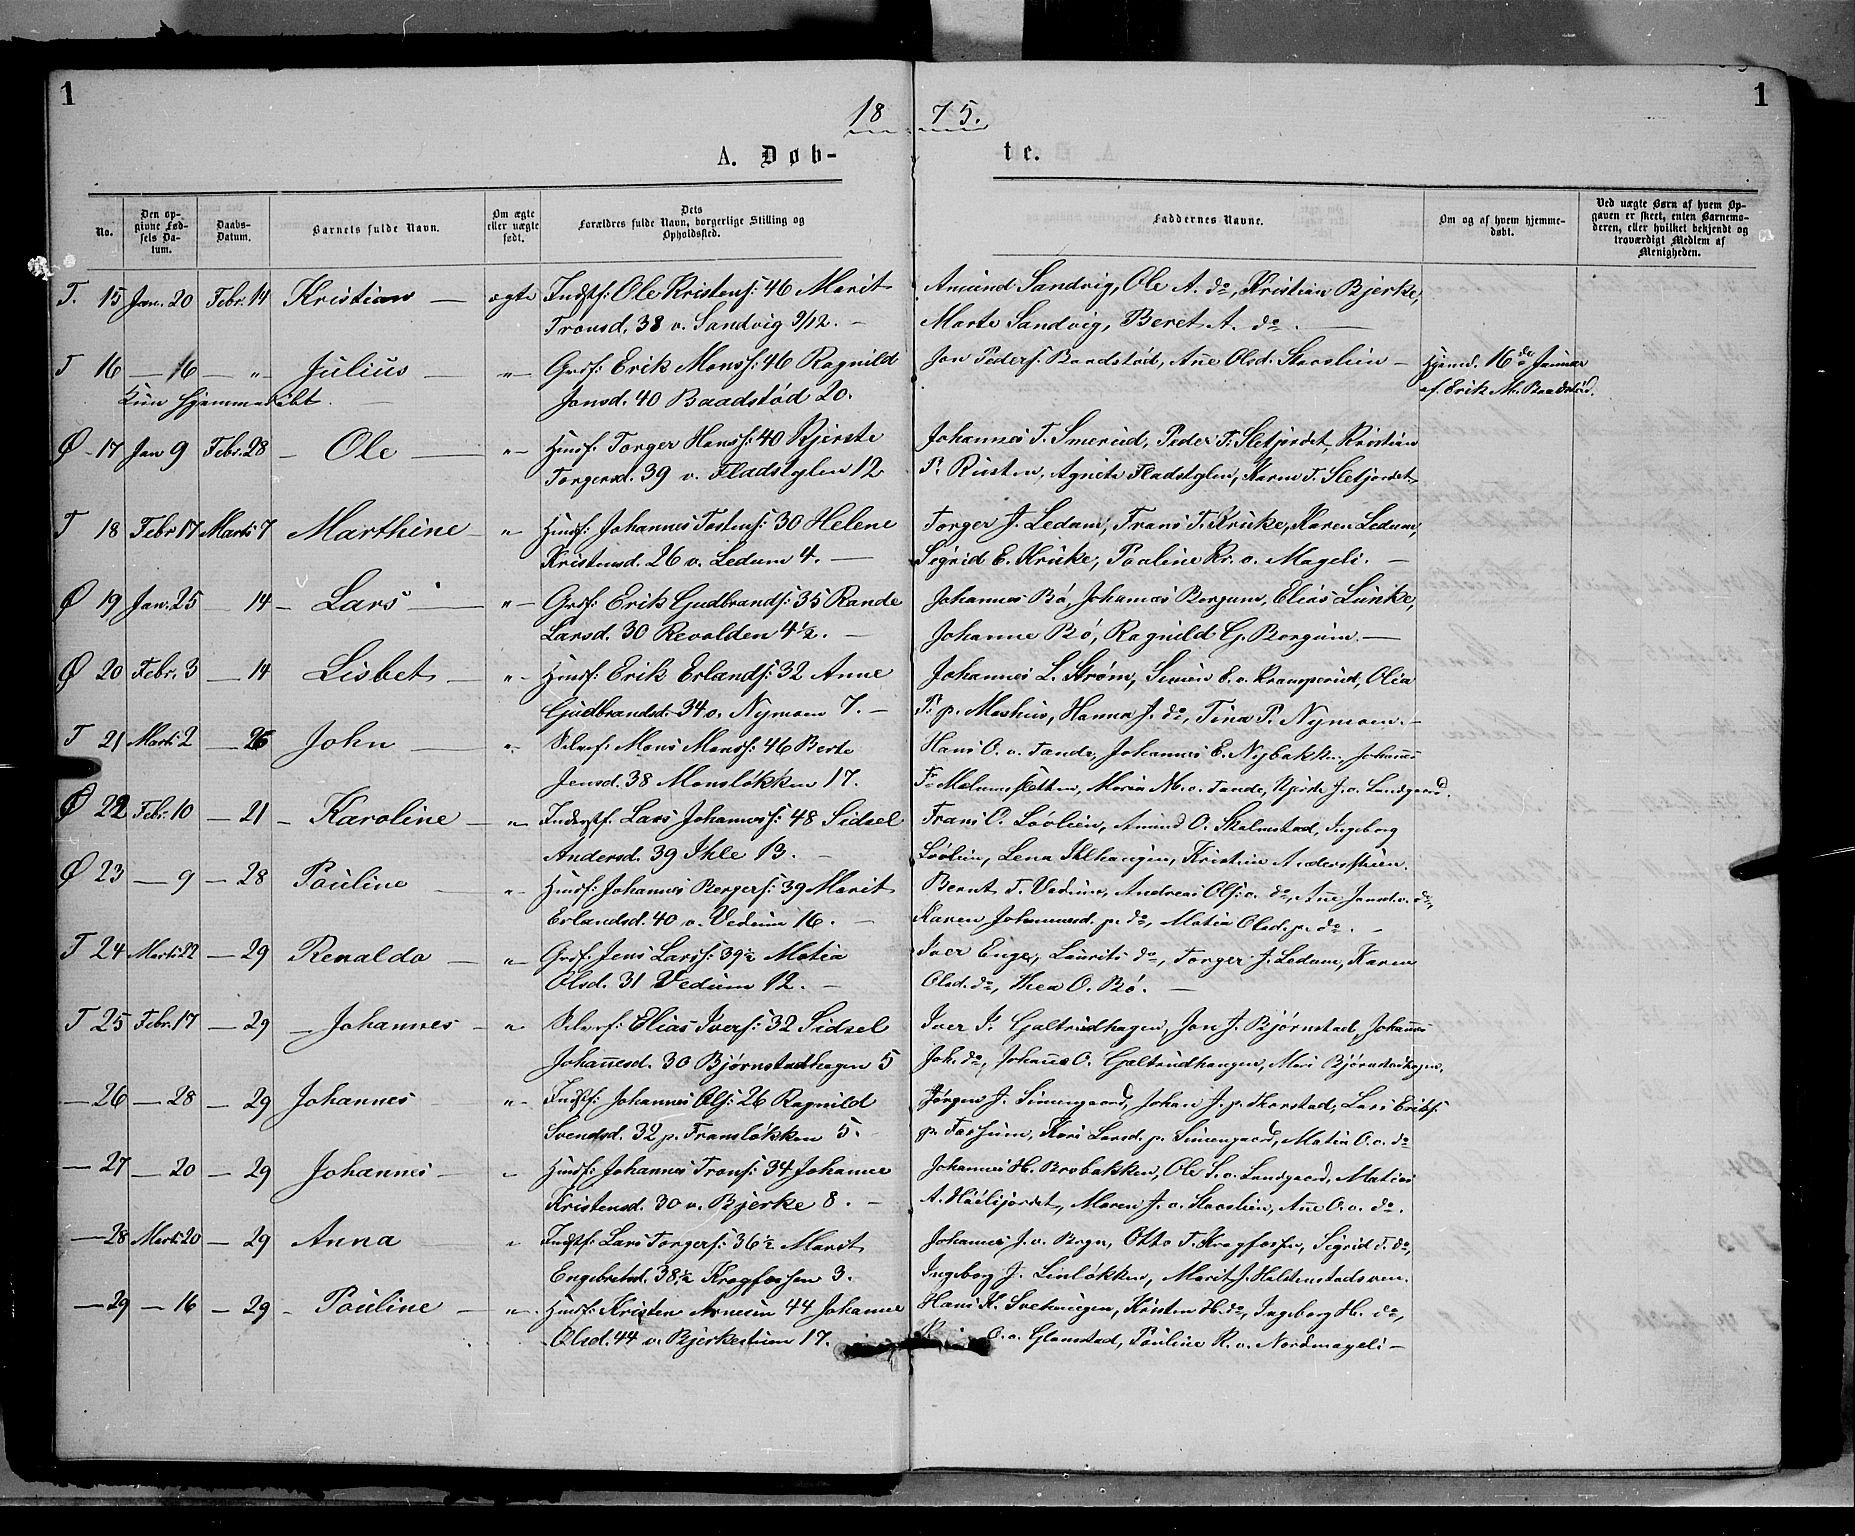 1
1
18 75.
A. Døb-
te.
No.
Den op-
givne Fød-
sels Da-
tum.
Daabs-
Datum.
Barnets fulde Navn.
Om ægte
eller uægte
født.
Dets
Forældres fulde Navn, borgerlige Stilling og
Opholdssted.
Faddernes Navne.
Om og af hvem hjemme-
døbt.
Ved uægte Børn af hvem Op-
gaven er skeet, enten Barnemo-
deren, eller hvilket bekjendt og
troværdigt Medlem af
Menigheden.
T. 15 Jan. 20 Febr. 14 Kristian — ægte Indstf: Ole Kristens: 46 Marit
Tronsd. 38 v. Sandvig 9/12. —
Amund Sandvig, Ole A. do, Kristian Bjerke,
Marte Sandvig, Beret A. do. —
T 16 — 16 — " Julius — " Grdf: Erik Monss: 46 Ragnild
Kun hjemmedøbt. — Jonsd. 40 Baadstød 20.
Jon Peders. Baadstød, Ane Olsd. Skaslien —
Hjemd. 16de Januar
af Erik M. Baadstød.
Ø 17 Jan 9 Febr. 28 — Ole — " Husf: Torger Hanss: 40 Kjerste
Torgersd. 39 v. Fladstylen 12
Johannes T. Smerud, Peder T. Sletjordet, Kristian
P. Rusten, Agnete Fladstylen, Karen T. Sletjordet
T 18 Febr 17 Marts 7 Marthine — " Husf: Johannes Tostens: 30 Helene
Kristensd. 26 v. Ledum 4. —
Torger J. Ledum, Frans T. Kruke, Karen Ledum,
Sigrid E. Kruke, Pauline Kr. v. Mageli. —
Ø 19 Jan. 25 — 14 — Lars — " Grdf: Erik Gudbrands: 35 Rande
Larsd. 30 Revolden 4½. —
Johannes Bø, Johannes Borgum, Elias Lunke,
Johanne Bø, Ragnild G. Borgum. —
Ø 20 Febr. 3 — 14 Lisbet — " Husf: Erik Erlands: 32 Anne
Gudbrandsd. 34 v. Nymoen 7. —
Johannes L. Strøm, Simen E. v. Kramperud, Olia
P. p. Moshus, Hanna J. do, Tina P. Nymoen. —
T 21 Marts 2 — 26 John — " Selvf: Mons Monss: 46 Berte
Jensd. 38 Monsløkken 17.
Hans O. v. Tande, Johannes E. Nybakken, Johannes
F. Melumsletten, Maria M. v. Tande, J. v. Landgaard.
Ø 22 Febr. 10 — 21 — Karoline — " Inderstf. Lars Johanness: 48 Sidsel
Andersd. 39 Ihle 13. —
Frans O. Loolien, Amund O. Skalmstad, Ingeborg
Loolien, Lena Ihlhaugen, Kristian
Ø 23 — 9 — 28 Pauline — " Husf: Johannes Bergers: 39 Marit
Erlandsd. 40 v. Vedum 16. —
Bernt T. Vedum, Andreas Ols. v. do, Ane Jansd. v. do,
Karen Johannesd. p. do, Matia Olsd. p. do. —
T 24 Marts 22 — 29 Renalda — " Grdf. Jens Larss: 39½ Matia
Olsd. 31 Vedum 12. —
Iver Enge, Laurits do, Torger J. Ledum, Karen
Olsd. do, Thea O. Bø. —
T 25 Febr. 17 — 29 — Johannes — " Selvf: Elias Ivers: 32 Sidsel
Johanesd. 30 Bjørnstadhagen 5
Iver P. Galtrudhagen, Jon J. Bjørnstad, Johannes
Joh. do, Johane O. Galtrudhaugen, Mari Bjørnstadhagen.
— 26 — 28 — 29 Johannes " Indstf: Johannes Ols: 26 Ragnild
Svendsd. 32 p. Fransløkken 5.
Jørgen J. Simengaard, Johan J. p. Korstad, Lars Eriks.
p. Fossum, Kari Larsd. p. Simengaard, Matia O. v. do
— 27 — 20 — 29 Johannes — " Husf: Johannes Trons: 34 Johanne
Kristensd. 30 v. Bjerke 8. —
Johannes H. Brobakken, Ole S. v. Landgaard, Matias
A. Haslijordet, Maren J. v. Skaslien, Ane O. v. do.
— 28 Marts 20 — 29 Anna — " Indstf: Lars Torgers: 36½ Marit
Engebretsd. 38½ Kragfossen 3.
Johannes J. v. Berge, Otto T. Kragfossen, Sigrid T. do,
Ingeborg J. Linløkken, Marit J. Halstenstadsven.
— 29 — 16 — 29 — Pauline — " Husf: Kristen Arnesen 44 Johanne
Olsd. 44 v. Bjerkestuen 17.
Hans K. Svehaugen, Kristen H. do, Ingeborg H. do,
O. v. Glomstad, Pauline K. v. Nordmageli —